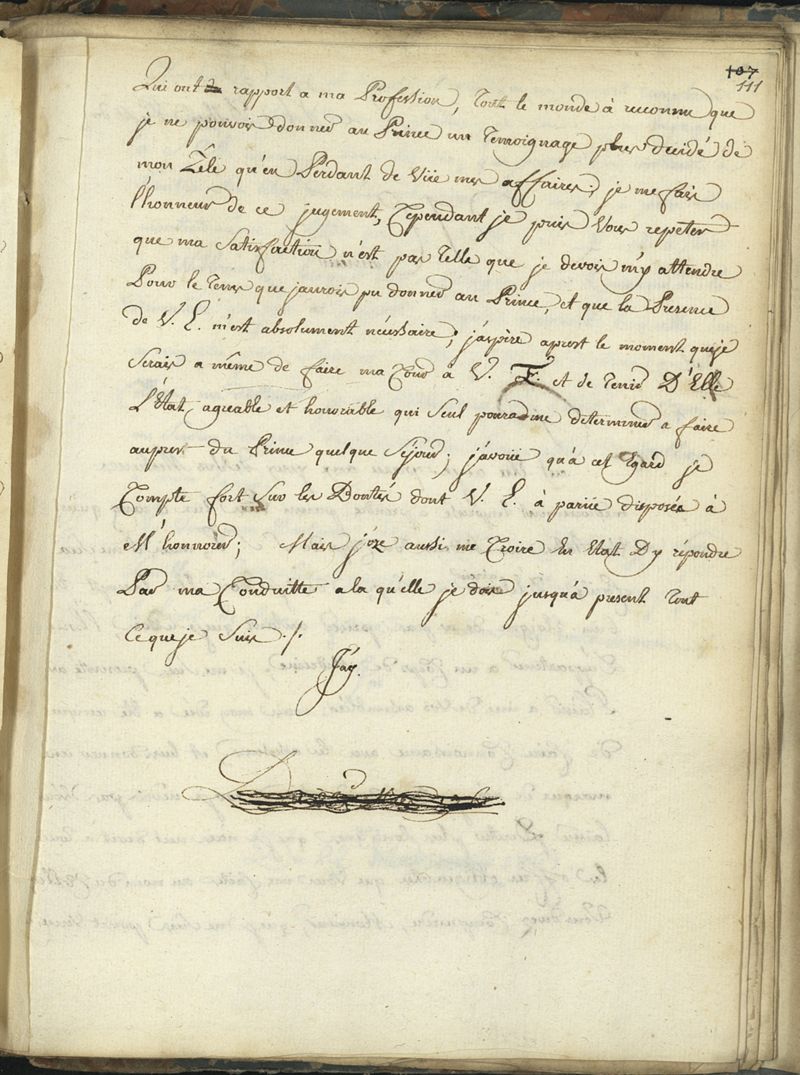 107
111
Qui ont rapport a ma Profession, tout le monde à reconnu que
je ne pouvois donner au Prince un temoignage plus decidé de
mon Zêle qu'en Perdant de Vüe mes affaires; je me fais
l'honneur de ce jugement, Cependant je puis Vous repeter
que ma Satisfaction n'est pas telle que je devois m'y attendre
Pour le tems que jaurois pu donner au Prince, et que la Presence
de V. E. m'est absolument nécessaire; j'aspire aprest le moment que je
Serais a même de faire ma Cour à V. E. et de tenir D'Elle
L'Etat agreable et honorable qui Seul poura me determiner a faire
aupres du Prince quelque Sejour; j'avoüe qu'à cet Egard je
Compte fort Sur les Bontés dont V. E. à pariie disposée à
M'honnorer; Mais j'oze aussi me Croire En Etat Dy répondre
Par ma Conduitte a la qu'elle je dois jusqu'à present tout
Ce que je Suis ./.